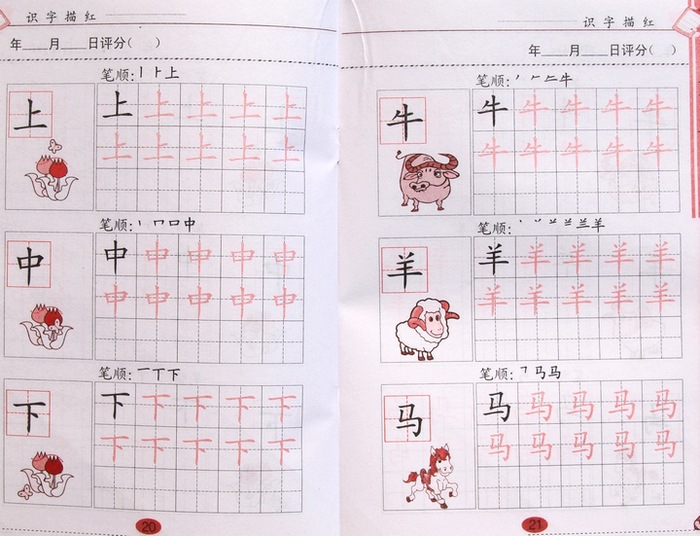 识字描红
年____月____日评分(　)
笔顺:丨卜上
上 上 上 上 上 上
上 上 上 上 上
笔顺:丨 口 口 中
中 中 中 中 中 中
中 中 中 中 中
笔顺:一 丅 下
下 下 下 下 下 下
下 下 下 下 下
20
识字描红
年____月____日评分(　)
笔顺:丿 𠂉 牛
牛 牛 牛 牛 牛 牛
牛 牛 牛 牛 牛
笔顺:丶 丷 羊
羊 羊 羊 羊 羊 羊
羊 羊 羊 羊 羊
笔顺:㇕ 马 马
马 马 马 马 马 马
马 马 马 马 马
21